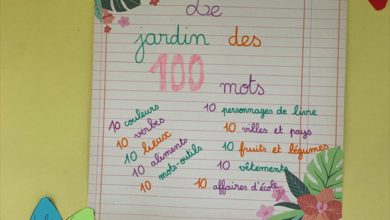 Le
jardin des
100
mots
10 couleurs
10 verbes
10 lieux
10 aliments
10 mots-outils
10 personnages de livre
10 villes et pays
10 fruits et légumes
10 vêtements
10 affaires d'école